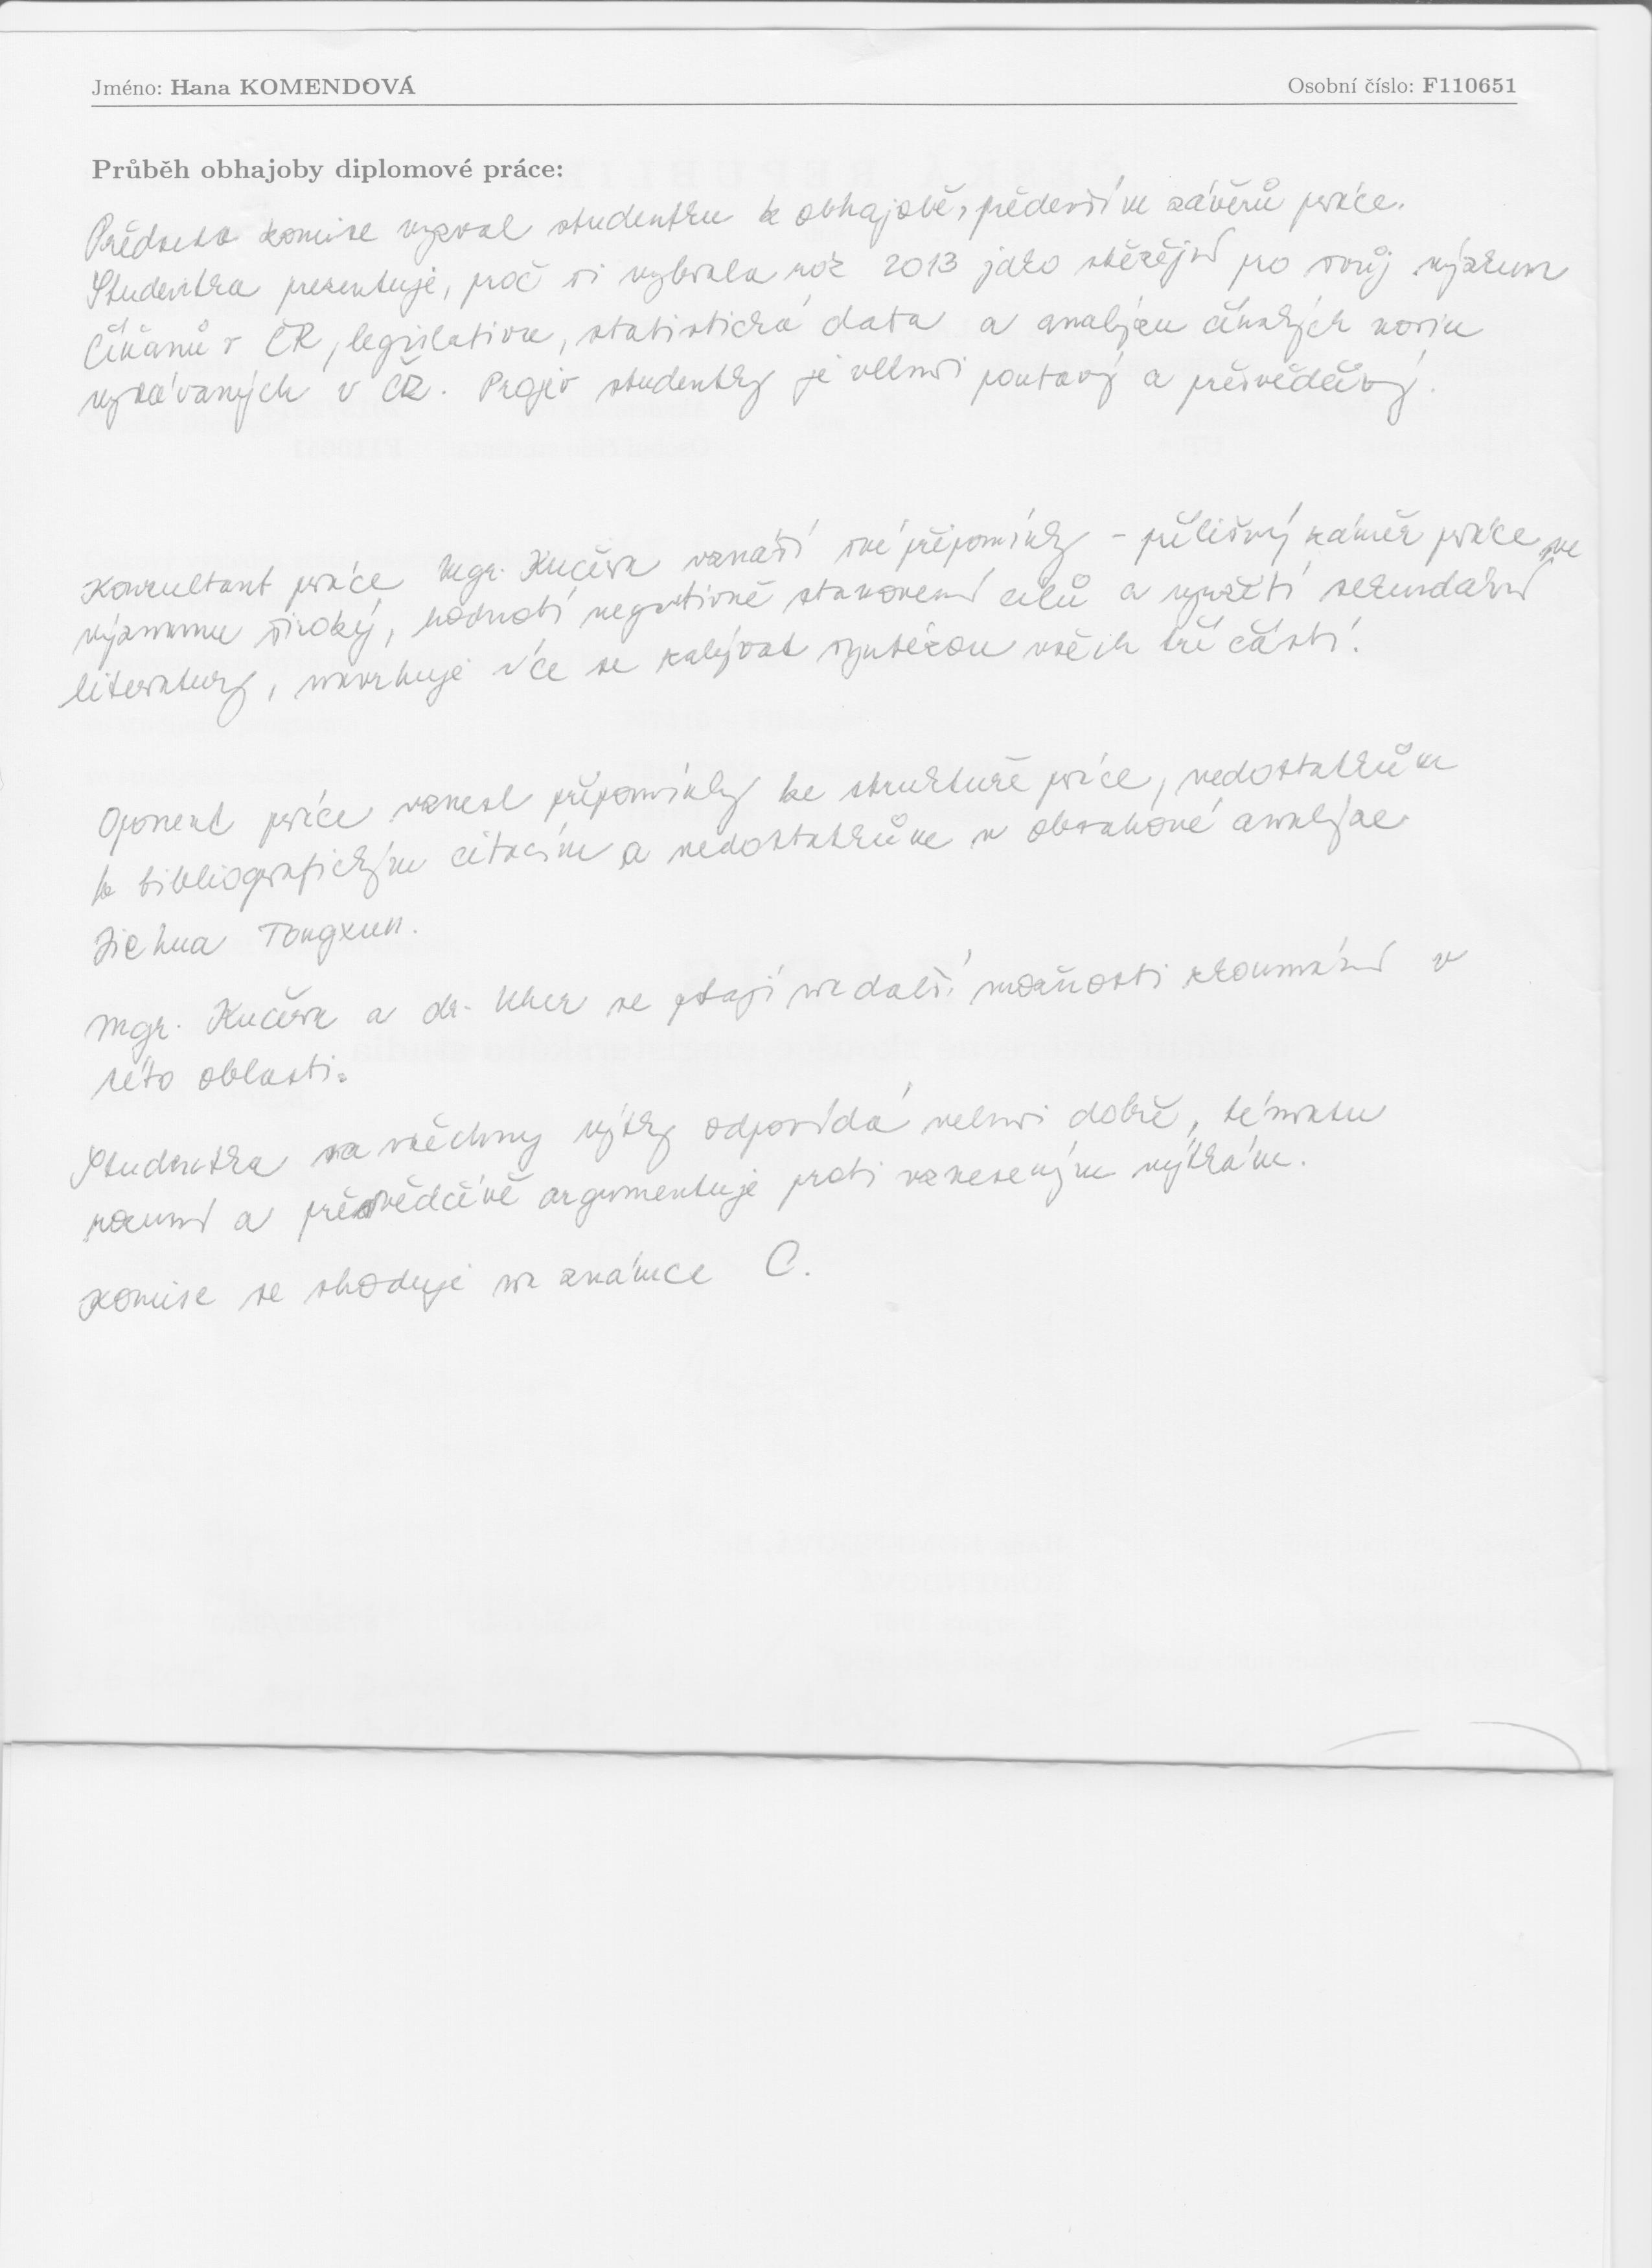 Jméno: Hana KOMENDOVÁ Osobní číslo: F110651
Průběh obhajoby diplomové práce:
Předseda komise vyzval studentku k obhajobě, především závěrů práce.
Studentka prezentuje, proč si vybrala rok 2013 jako stěžejní pro svůj výzkum
Číňanů v ČR, legislativu, statistická data a analýzu čínských novin
vydávaných v ČR. Projev studentky je velmi poutavý a přesvědčivý.
Konzultant práce Mgr. Kučera vznáší své připomínky - přílišný záměr práce
významu široký, hodnotí negativně stanovení cílů a využití sekundární
literatury, navrhuje více se zabývat syntézou všech tří částí.
Oponent práce vznesl připomínky ke struktuře práce, nedostatkům
k bibliografickým citacím a nedostatkům v obsahové analýze
Jiehua Tongxun.
Mgr. Kučera a dr. Uher se ptají na další možnosti zkoumání v
této oblasti.
Studentka na všechny výtky odpovídá velmi dobře, tématu
rozumí a přesvědčivě argumentuje proti vzneseným výtkám.
Komise se shoduje na známce C.